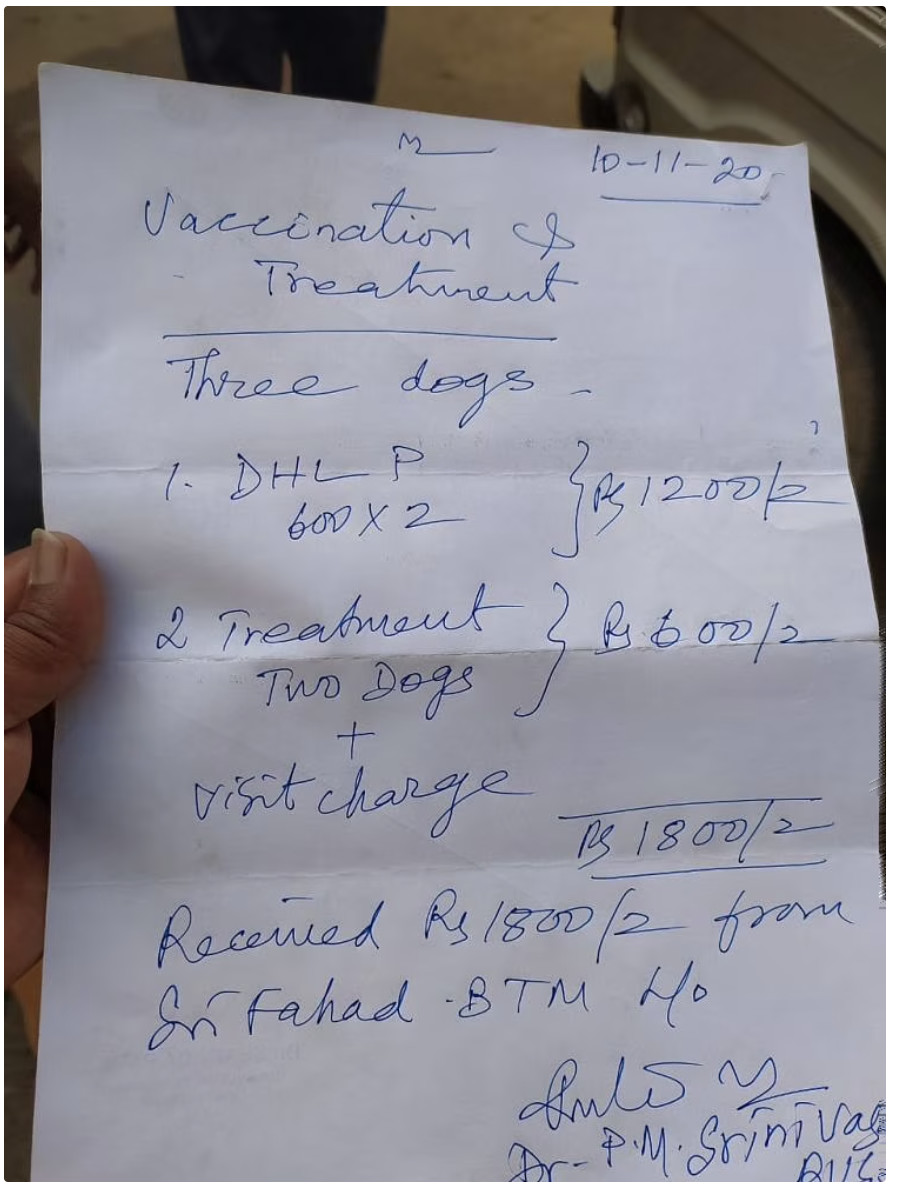 10-11-20
Vaccination &
Treatment
Three dogs -
1. DHL P
600 X 2
} Rs 1200/-
2 Treatment
Two Dogs
} Rs 600/-
+
visit charge
Rs 1800/-
Received Rs 1800/- from
Sri Fahad - BTM
Dr - P.M. Srinivas